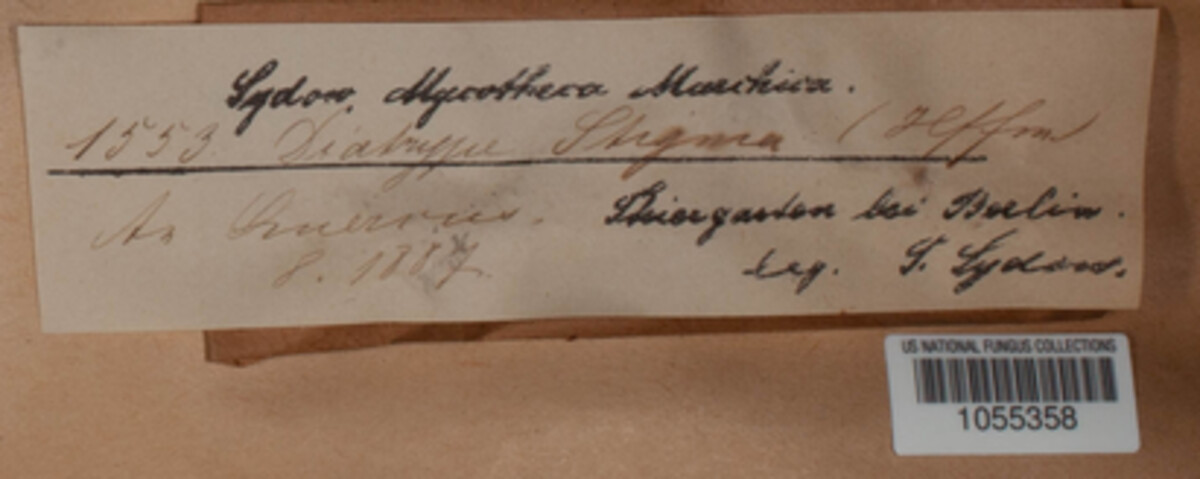 Sydow, Mycotheca Marchica.
1553 Diatrype Stigma (Hoffm)
An Quercus.
Thiergarten bei Berlin.
8. 1887
leg. P. Sydow.
US NATIONAL FUNGUS COLLECTIONS
1055358